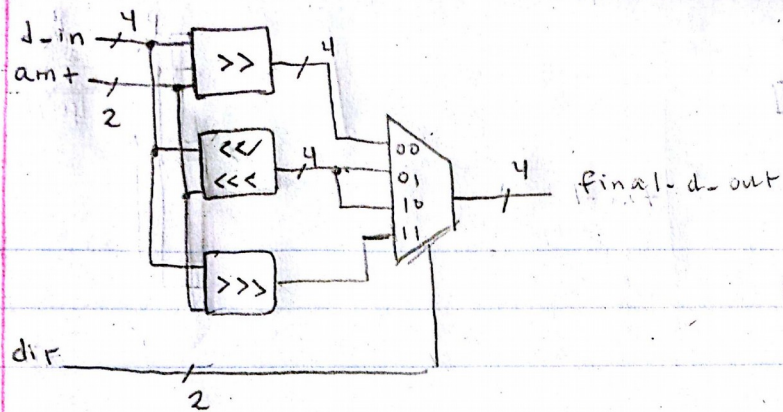 4
d-in
>>
4
amt
2
<</
<<<
4
00
01
10
11
4
final-d-out
>>>
dir
2